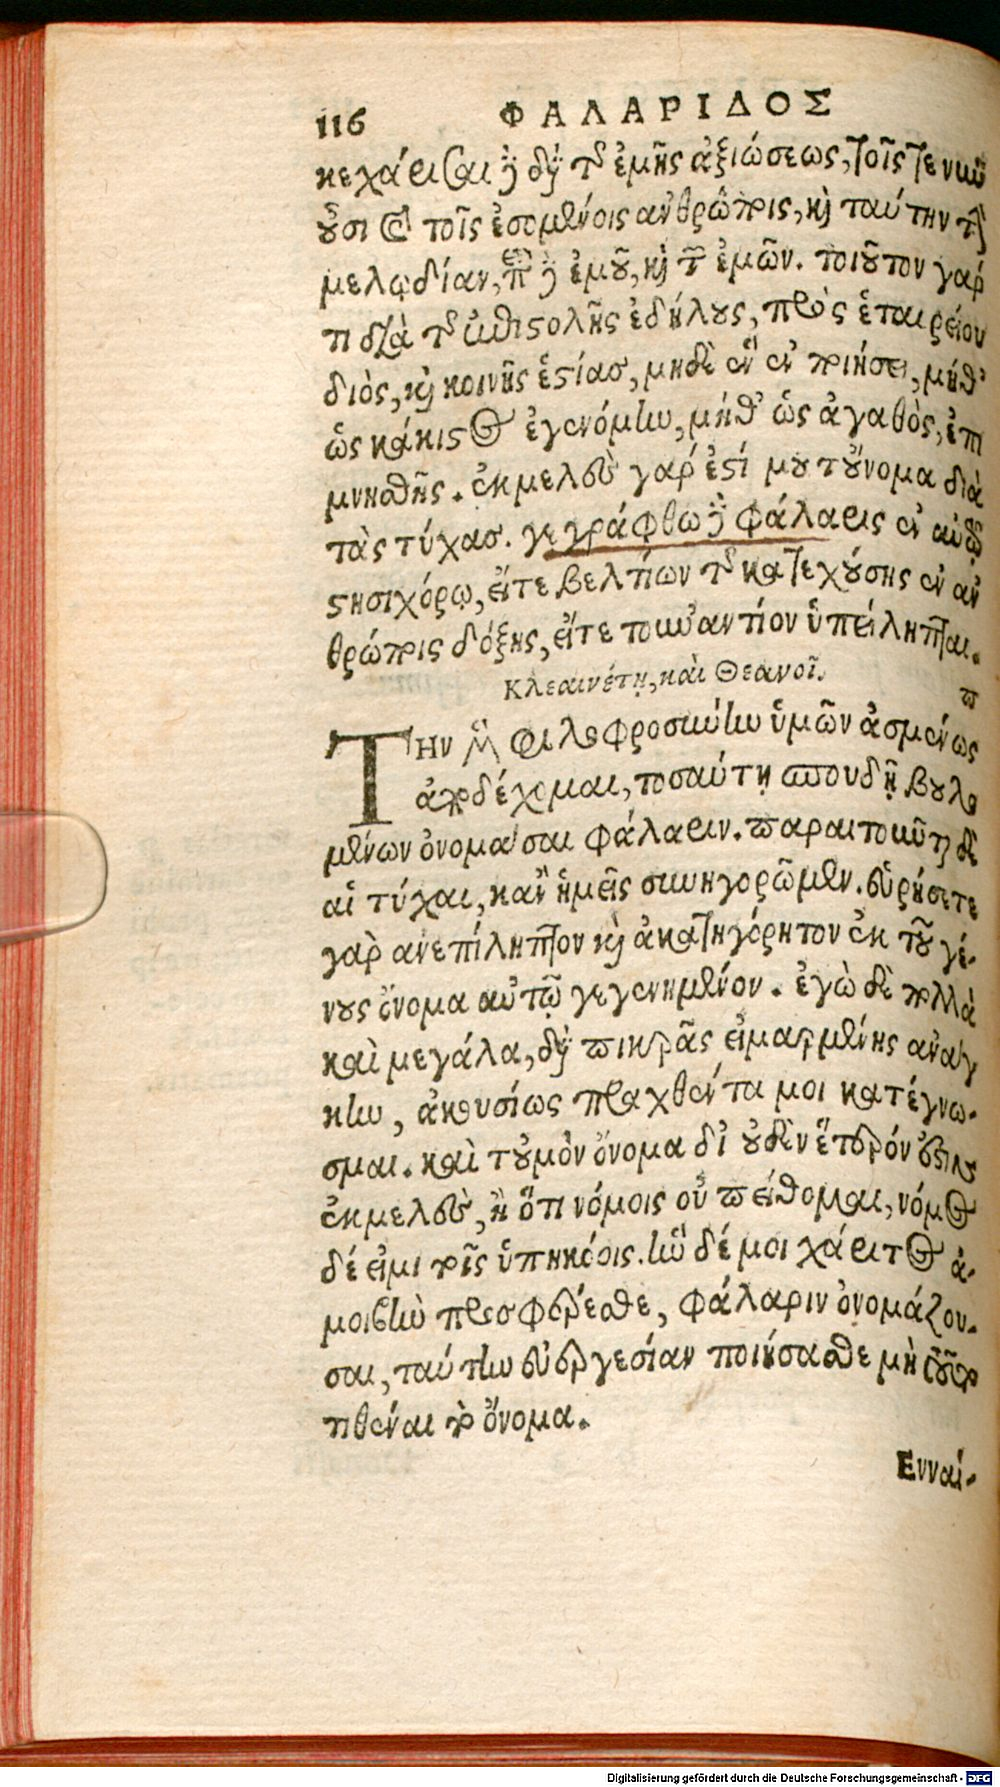 116 ΦΑΛΑΡΙΔΟΣ
κεχάρισαι δὲ διὰ τῆς ἐμῆς ἀξιώσεως, τοῖς τε νῦν
οὖσι καὶ τοῖς ἐσομένοις ἀνθρώποις, καὶ ταύτην τὴν
μελῳδίαν, περὶ δὲ ἐμοῦ, καὶ τῶν ἐμῶν. τοιοῦτον γάρ
τι διὰ τῆς ἐπιστολῆς ἐδήλους, πρὸς ἑταιρείου
διὸς, καὶ κοινῆς ἑστίασ, μηδὲ ἓν ἐν ποιήσει, μήθ'
ὡς κάκιστος ἐγενόμην, μήθ' ὡς ἀγαθὸς, ἐπι
μνησθῇς. ἐκμελὲς γάρ ἐστί μου τοὔνομα διὰ
τὰς τύχασ. γεγράφθω δὲ φάλαρις ἐν αὐτῷ
στησιχόρῳ, εἴτε βελτίων τῆς κατεχούσης ἐν ἀν
θρώποις δόξης, εἴτε τοὐναντίον ὑπείληπται.
Κλεαινέτῃ, καὶ Θεανοῖ. π
Την μὲν φιλοφροσύνην ὑμῶν ἀσμένως
ἀποδέχομαι, τοσαύτῃ σπουδῇ βουλο
μένων ὀνομάσαι φάλαριν. παραιτοῦνται δὲ
αἱ τύχαι, κἂν ἡμεῖς συνηγορῶμεν. εὑρήσετε
γὰρ ἀνεπίληπτον καὶ ἀκατηγόρητον ἐκ τοῦ γέ-
νους ὄνομα αὐτῷ γεγενημένον. ἐγὼ δὲ πολλὰ
καὶ μεγάλα, διὰ πικρᾶς εἱμαρμένης ἀνάγ
κην, ἀκουσίως πραχθέντα μοι κατέγνω-
σμαι. καὶ τοὐμὸν ὄνομα δι' οὐδὲν ἕτερόν ἐστιν
ἐκμελὲς, ἢ ὅτι νόμοις οὐ πείθομαι, νόμος
δέ εἰμι τοῖς ὑπηκόοις. ἣν δέ μοι χάριτος ἀ-
μοιβὴν προσφέρεσθε, φάλαριν ὀνομάζου-
σαι, ταύτην εὐεργεσίαν ποιήσασθε μὴ
τιθέναι τὸ ὄνομα.
Ενναί-
Digitalisierung gefördert durch die Deutsche Forschungsgemeinschaft - DFG